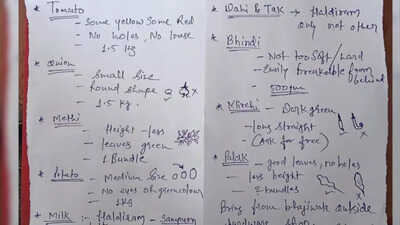 * Tomato
- Some yellow Some Red
- No holes, No loose
- 1.5 kg
* Onion
- Small Size
- Round shape
- 1.5 kg.
* Methi
- Height - less
- leaves green
- 1 Bundle
* Potato
- Medium Size
- No eyes oh green colour
- 1 kg
* Milk :- Haldiram -
* Dahi & Tak → Haldiram
only not other
* Bhindi
- Not too Soft / hard
- Easily breakable from
behind
- 500 gm
* Mirchi - Dark green
- long straight
- (Ask for free)
* Palak - good leaves, no holes
- less height
- 2 bundles
Bring from bhajiwala outside
hardware shop